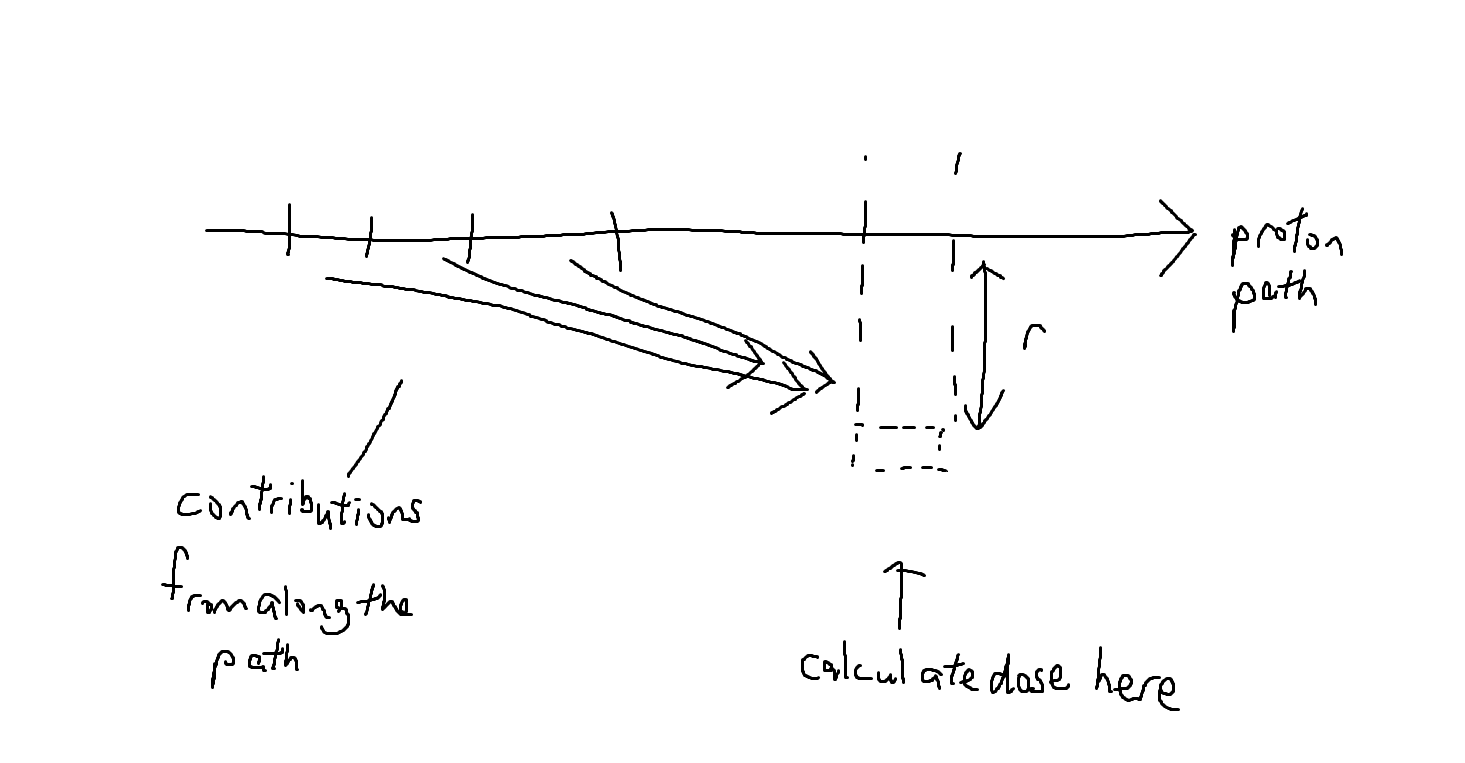 proton
path
r
contributions
from along the
path
calculate dose here